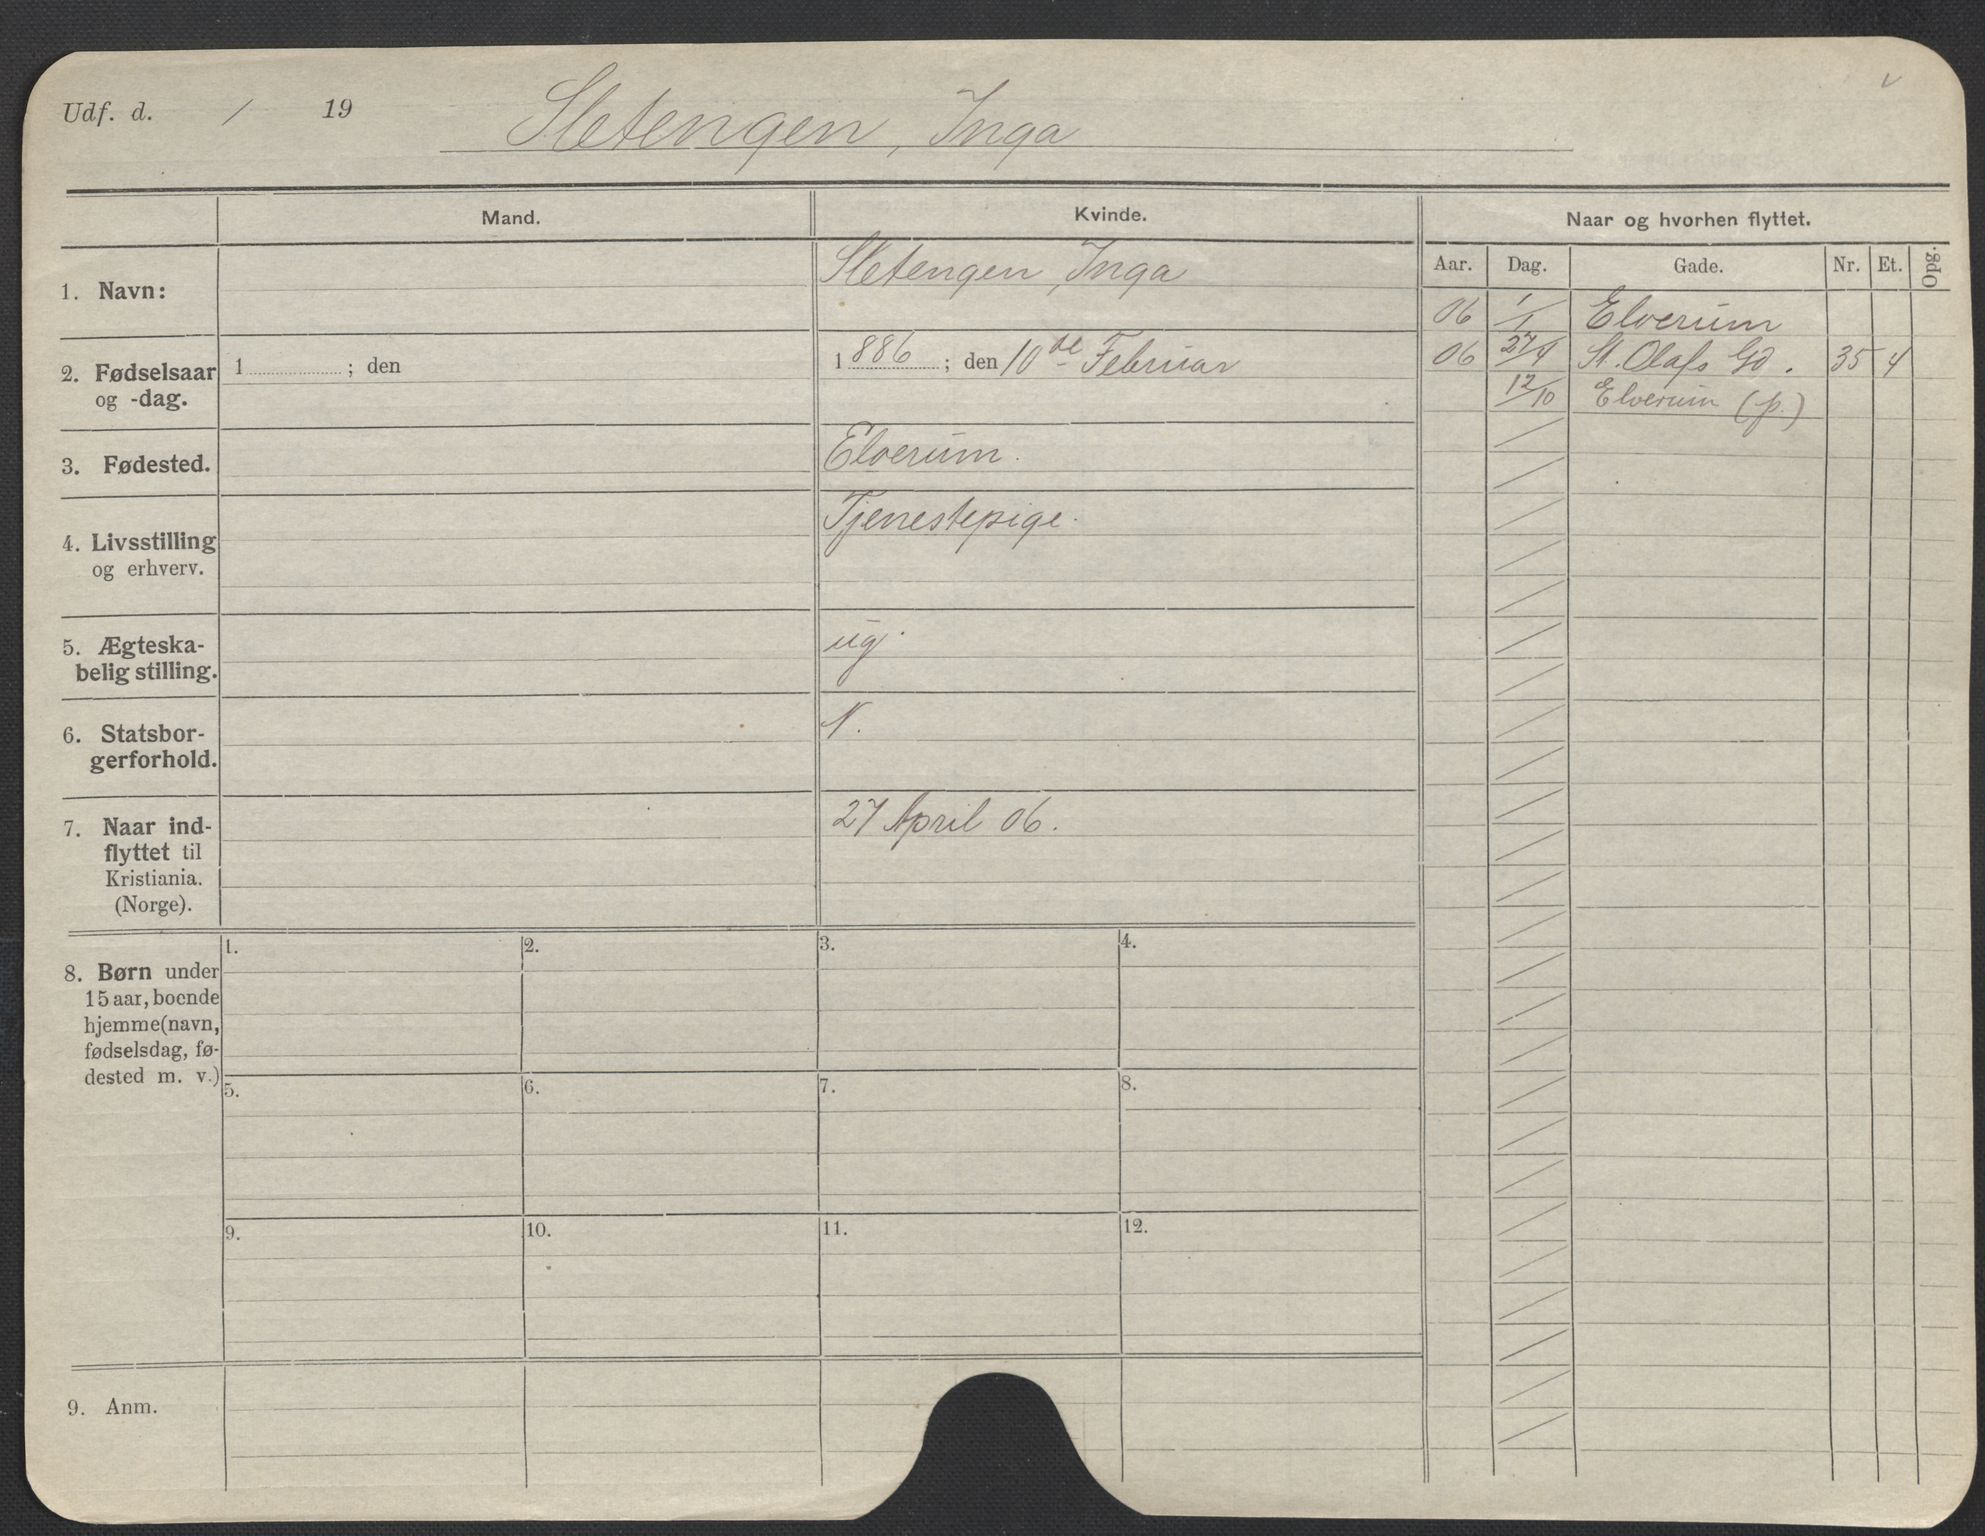 Udf. d. / 19
Sletengen, Inga
Mand. Kvinde. Naar og hvorhen flyttet.
Aar. Dag. Gade. Nr. Et. Opg.
1. Navn: Sletengen, Inga
06 1/1 Elverum
06 27/4 St. Olafs Gd. 35 4
12/10 Elverum (p.)
2. Fødselsaar
og -dag.
1 ; den
1 886 ; den 10de Februar
3. Fødested. Elverum.
4. Livsstilling
og erhverv.
Tjenestepige.
5. Ægteska-
belig stilling.
ug.
6. Statsbor-
gerforhold.
N.
7. Naar ind-
flyttet til
Kristiania.
(Norge).
27 April 06.
8. Børn under
15 aar, boende
hjemme (navn,
fødselsdag, fø-
dested m. v.)
1. 2. 3. 4.
5. 6. 7. 8.
9. 10. 11. 12.
9. Anm.